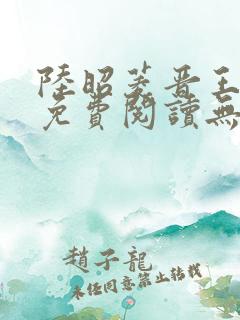 陸昭菱晉王
免費閱讀無
趙子龍
未經同意禁止轉載